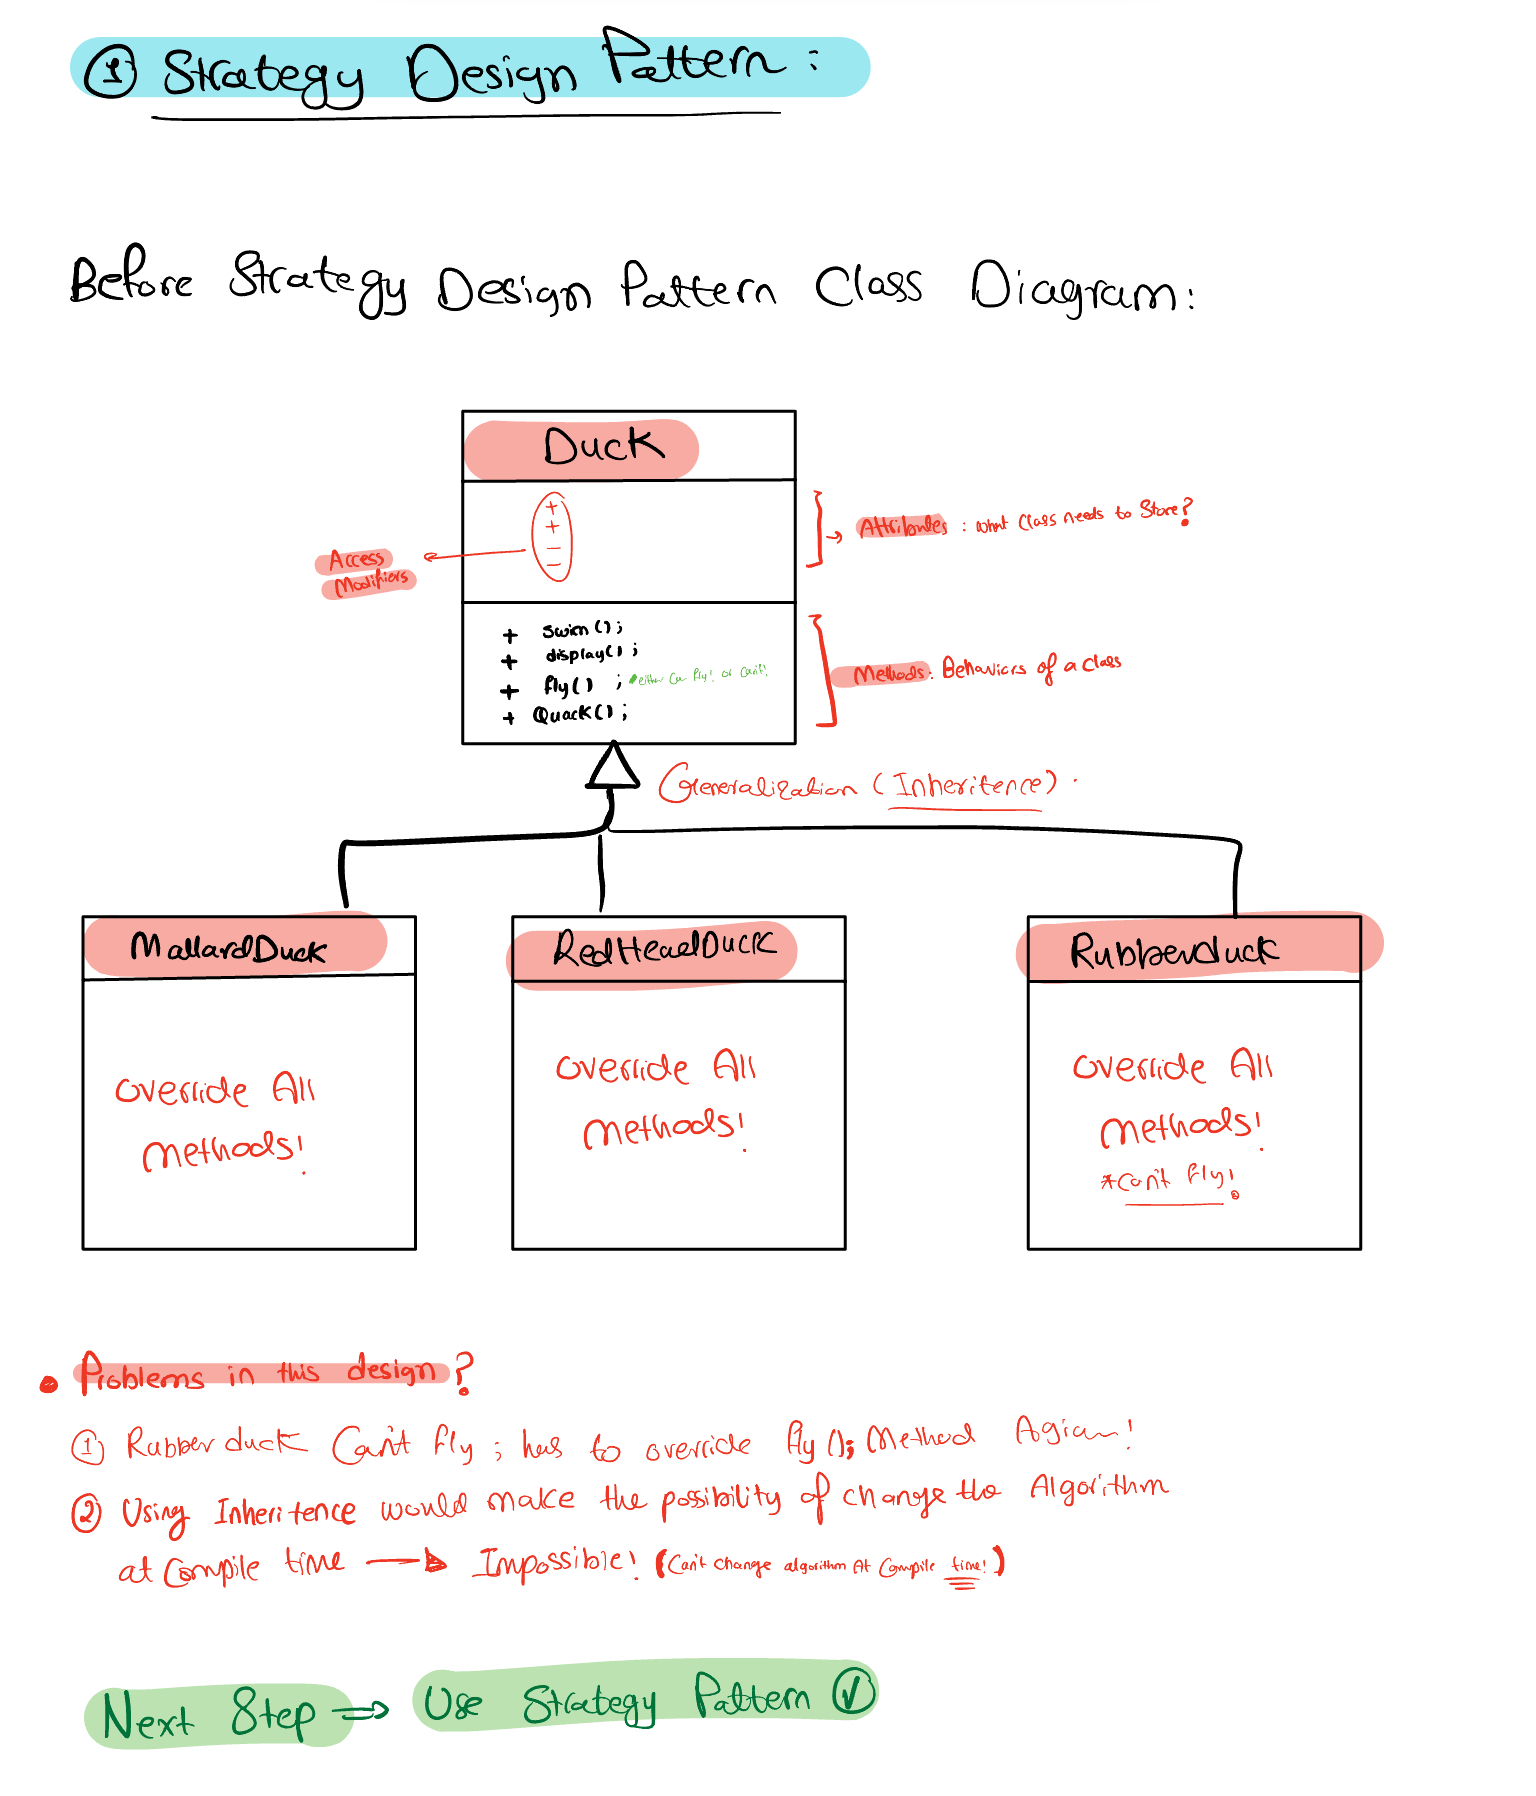 ① Strategy Design Pattern :
Before Strategy Design Pattern Class Diagram:
Duck
+
+
-
-
Access
Modifiers
Attributes : what Class needs to Store?
+ swim();
+ display();
+ fly() ; *either Can fly! or Can't!
+ Quack();
Methods: Behaviors of a class
Generalization (Inheritence).
MallardDuck
RedHeadDuck
Rubberduck
override All
methods!
override All
methods!
override All
methods!
*Can't fly!
• Problems in this design?
① Rubber duck Can't fly ; has to override fly(); Method Agian!
② Using Inheritence would make the possibility of change the Algorithm
at Compile time → Impossible! (Can't change algorithm At Compile time!)
Next Step ⇒ Use Strategy Pattern ✓